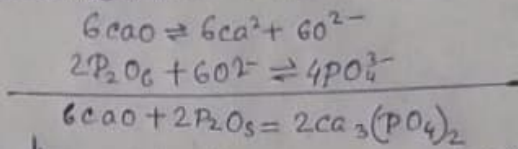 6cao ⇌ 6ca²+ 6O²⁻
2P₂O₆ + 6O²⁻ ⇌ 4PO₄³⁻
6cao + 2P₂O₅ = 2ca₃(PO₄)₂